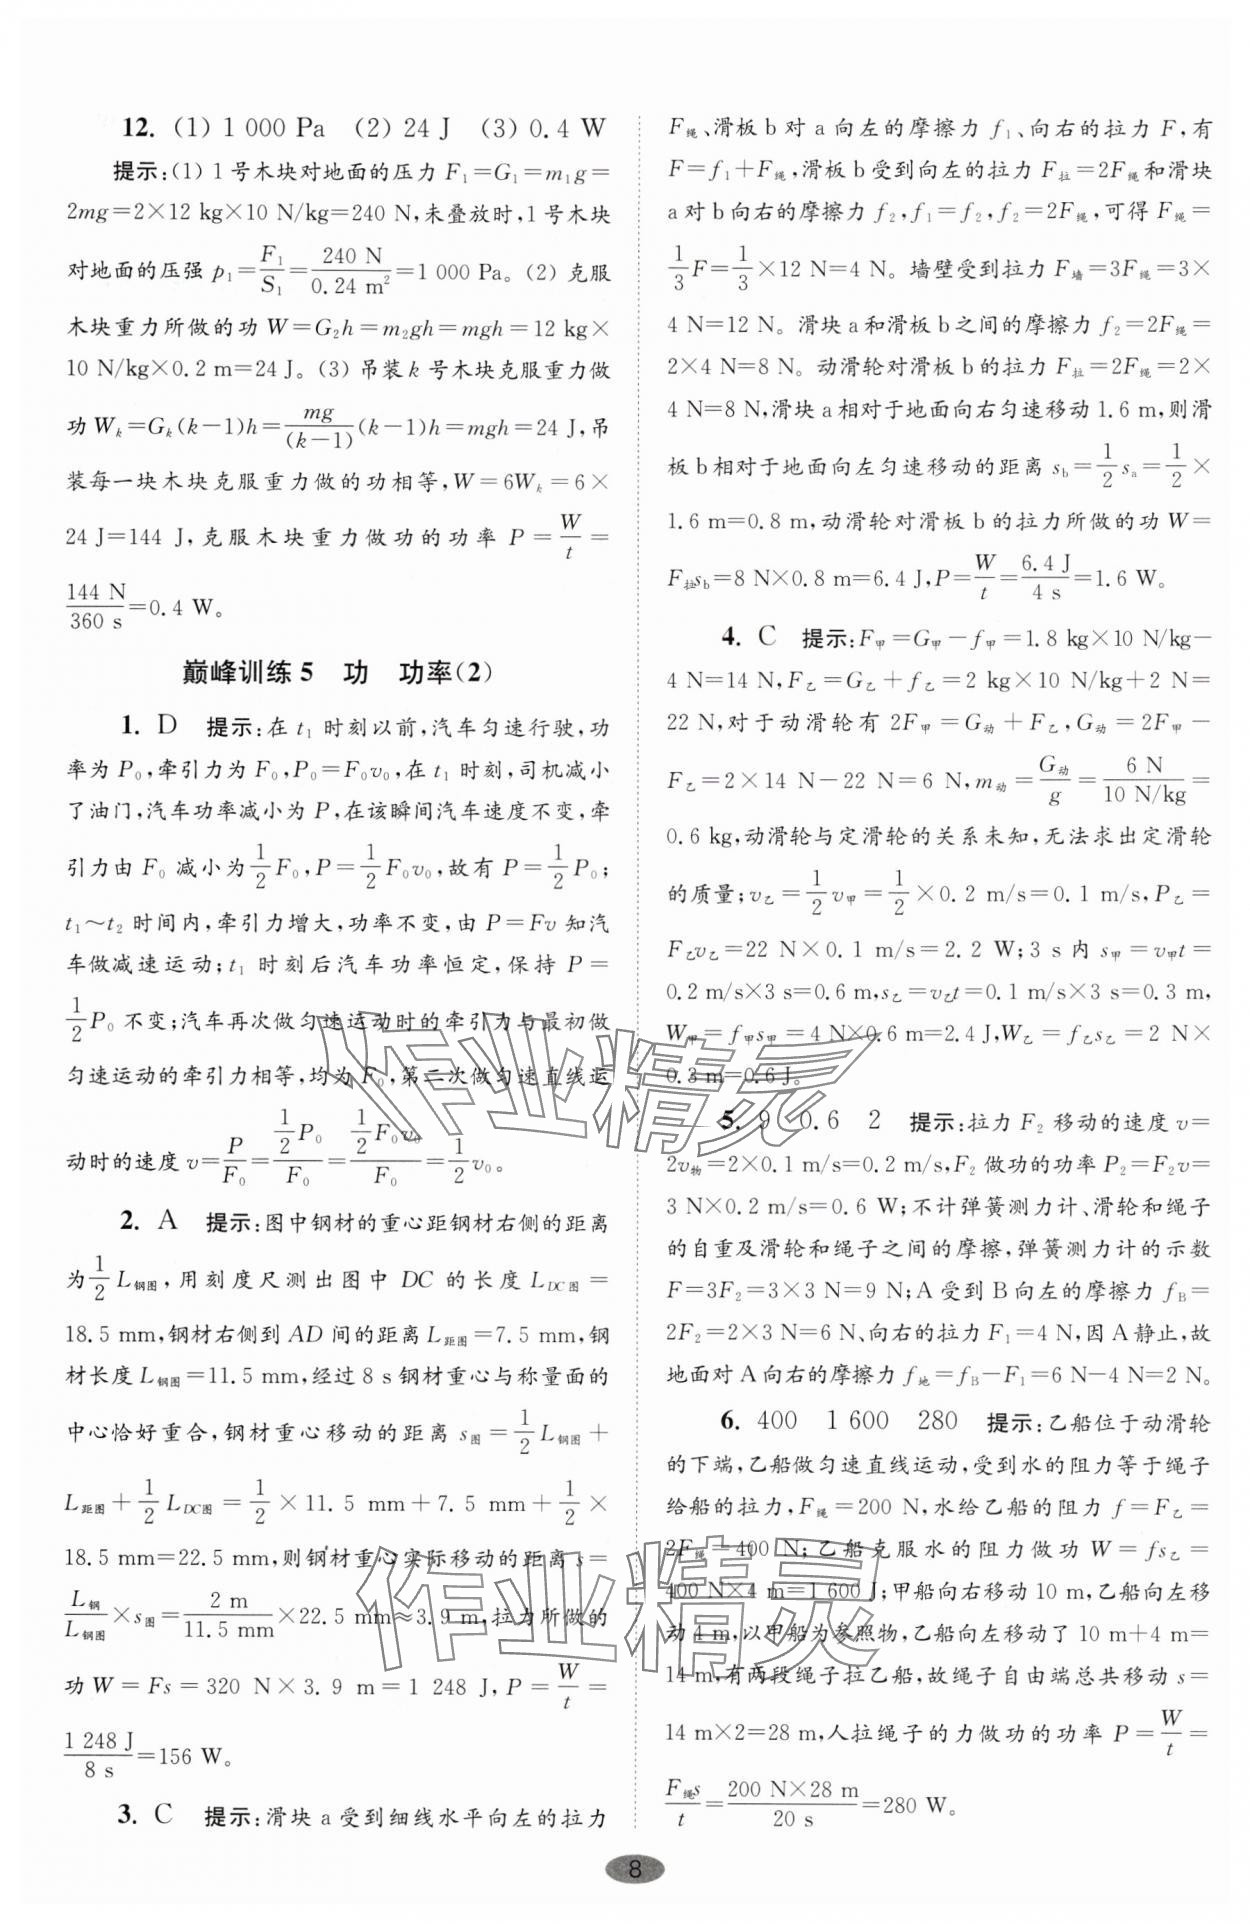 12. (1) 1 000 Pa (2) 24 J (3) 0.4 W
提示:(1) 1号木块对地面的压力 F₁=G₁=m₁g=
2mg=2×12 kg×10 N/kg=240 N,未叠放时,1号木块
对地面的压强 p₁=F₁/S₁=240 N/0.24 m²=1 000 Pa。(2) 克服
木块重力所做的功 W=G₂h=m₂gh=mgh=12 kg×
10 N/kg×0.2 m=24 J。(3) 吊装k号木块克服重力做
功 Wₖ=Gₖ(k-1)h=mg/(k-1)(k-1)h=mgh=24 J,吊
装每一块木块克服重力做的功相等,W=6Wₖ=6×
24 J=144 J,克服木块重力做功的功率 P=W/t=
144 N/360 s=0.4 W。
巅峰训练5 功 功率(2)
1. D 提示:在 t₁ 时刻以前,汽车匀速行驶,功
率为 P₀,牵引力为 F₀,P₀=F₀v₀,在 t₁ 时刻,司机减小
了油门,汽车功率减小为 P,在该瞬间汽车速度不变,牵
引力由 F₀ 减小为1/2F₀,P=1/2F₀v₀,故有 P=1/2P₀;
t₁~t₂ 时间内,牵引力增大,功率不变,由 P=Fv 知汽
车做减速运动;t₁ 时刻后汽车功率恒定,保持 P=
1/2P₀ 不变;汽车再次做匀速运动时的牵引力与最初做
匀速运动的牵引力相等,均为 F₀,第二次做匀速直线运
动时的速度 v=P/F₀=(1/2P₀)/F₀=(1/2F₀v₀)/F₀=1/2v₀。
2. A 提示:图中钢材的重心距钢材右侧的距离
为1/2L钢图,用刻度尺测出图中 DC 的长度 L_DC图=
18.5 mm,钢材右侧到 AD 间的距离 L距图=7.5 mm,钢
材长度 L钢图=11.5 mm,经过 8 s 钢材重心与称量面的
中心恰好重合,钢材重心移动的距离 s图=1/2L钢图+
L距图+1/2L_DC图=1/2×11.5 mm+7.5 mm+1/2×
18.5 mm=22.5 mm,则钢材重心实际移动的距离 s=
L钢/L钢图×s图=2 m/11.5 mm×22.5 mm≈3.9 m,拉力所做的
功 W=Fs=320 N×3.9 m=1 248 J,P=W/t=
1 248 J/8 s=156 W。
3. C 提示:滑块 a 受到细线水平向左的拉力
F绳、滑板 b 对 a 向左的摩擦力 f₁、向右的拉力 F,有
F=f₁+F绳,滑板 b 受到向左的拉力 F拉=2F绳和滑块
a 对 b 向右的摩擦力 f₂,f₁=f₂,f₂=2F绳,可得 F绳=
1/3F=1/3×12 N=4 N。墙壁受到拉力 F墙=3F绳=3×
4 N=12 N。滑块 a 和滑板 b 之间的摩擦力 f₂=2F绳=
2×4 N=8 N。动滑轮对滑板 b 的拉力 F拉=2F绳=2×
4 N=8 N,滑块 a 相对于地面向右匀速移动 1.6 m,则滑
板 b 相对于地面向左匀速移动的距离 s_b=1/2s_a=1/2×
1.6 m=0.8 m,动滑轮对滑板 b 的拉力所做的功 W=
F拉s_b=8 N×0.8 m=6.4 J,P=W/t=6.4 J/4 s=1.6 W。
4. C 提示:F甲=G甲-f甲=1.8 kg×10 N/kg-
4 N=14 N,F乙=G乙+f乙=2 kg×10 N/kg+2 N=
22 N,对于动滑轮有 2F甲=G动+F乙,G动=2F甲-
F乙=2×14 N-22 N=6 N,m动=G动/g=6 N/10 N/kg=
0.6 kg,动滑轮与定滑轮的关系未知,无法求出定滑轮
的质量;v乙=1/2v甲=1/2×0.2 m/s=0.1 m/s,P乙=
F乙v乙=22 N×0.1 m/s=2.2 W;3 s 内 s甲=v甲t=
0.2 m/s×3 s=0.6 m,s乙=v乙t=0.1 m/s×3 s=0.3 m,
W甲=f甲s甲=4 N×0.6 m=2.4 J,W乙=f乙s乙=2 N×
0.3 m=0.6 J。
5. 9 0.6 2 提示:拉力 F₂ 移动的速度 v=
2v物=2×0.1 m/s=0.2 m/s,F₂ 做功的功率 P₂=F₂v=
3 N×0.2 m/s=0.6 W;不计弹簧测力计、滑轮和绳子
的自重及滑轮和绳子之间的摩擦,弹簧测力计的示数
F=3F₂=3×3 N=9 N;A 受到 B 向左的摩擦力 f_B=
2F₂=2×3 N=6 N、向右的拉力 F₁=4 N,因 A 静止,故
地面对 A 向右的摩擦力 f地=f_B-F₁=6 N-4 N=2 N。
6. 400 1 600 280 提示:乙船位于动滑轮
的下端,乙船做匀速直线运动,受到水的阻力等于绳子
给船的拉力,F绳=200 N,水给乙船的阻力 f=F乙=
2F绳=400 N;乙船克服水的阻力做功 W=fs乙=
400 N×4 m=1 600 J;甲船向右移动 10 m,乙船向左移
动 4 m,以甲船为参照物,乙船向左移动了 10 m+4 m=
14 m,有两段绳子拉乙船,故绳子自由端总共移动 s=
14 m×2=28 m,人拉绳子的力做功的功率 P=W/t=
F绳s/t=200 N×28 m/20 s=280 W。
作业精灵
作业精灵
8